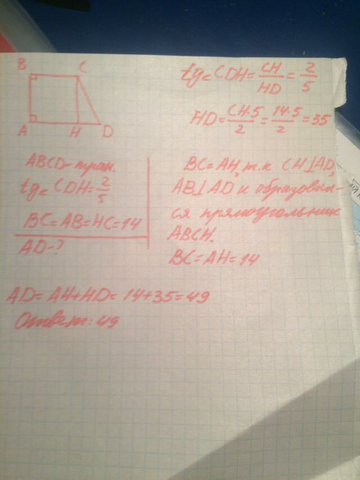 B C
A H D
tg∠CDH = CH/HD = 2/5
HD = CH·5/2 = 14·5/2 = 35
ABCD-трап.
tg∠CDH = 2/5
BC=AB=HC=14
AD-?
BC=AH, т.к CH⊥AD,
AB⊥AD и образовал-
ся прямоугольник
ABCH.
BC=AH=14
AD=AH+HD=14+35=49
Ответ: 49